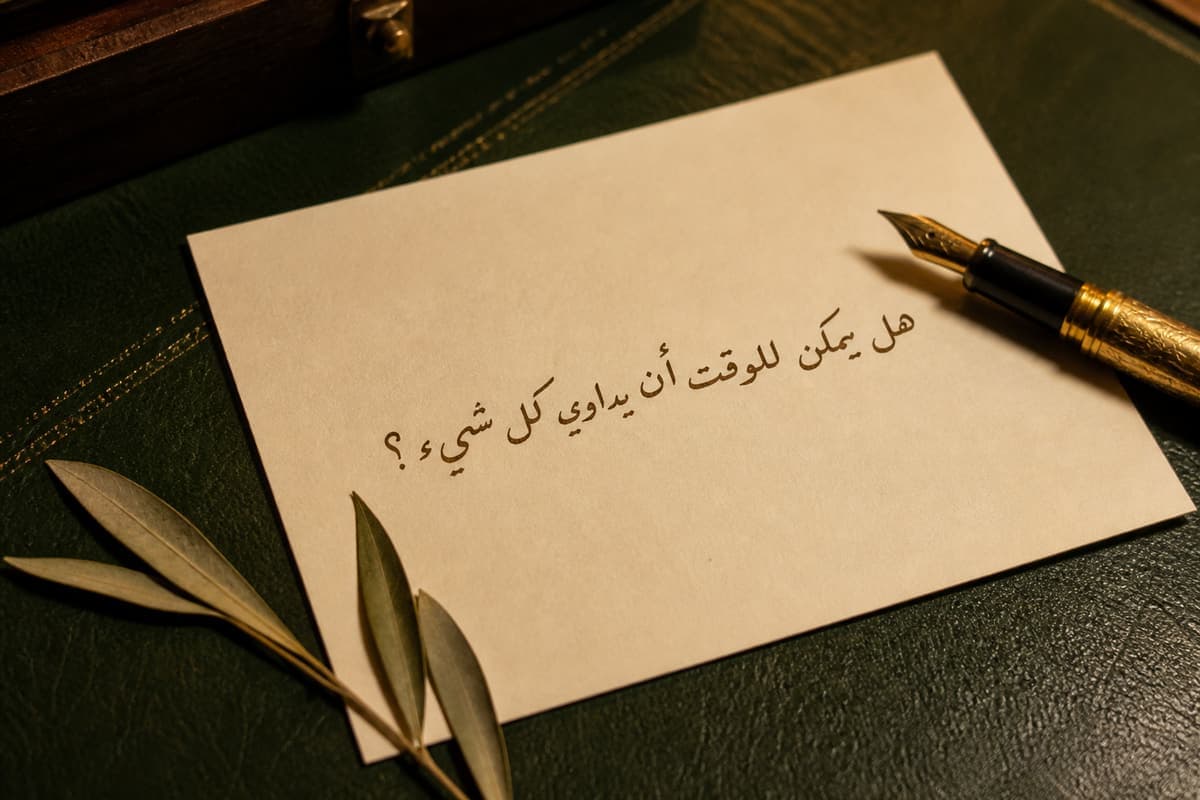 هل يمكن للوقت أن يداوي كل شيء ؟